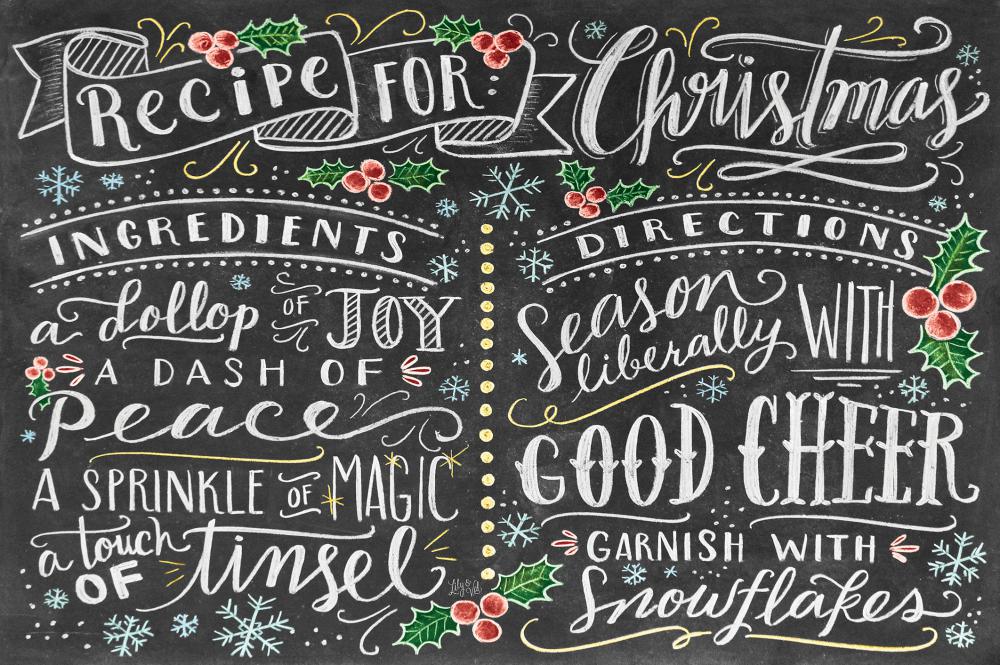 Recipe FOR Christmas
INGREDIENTS
a dollop OF JOY
A DASH OF
Peace
A SPRINKLE OF MAGIC
a touch
OF tinsel
Lily & Val
DIRECTIONS
Season
liberally WITH
GOOD CHEER
GARNISH WITH
Snowflakes